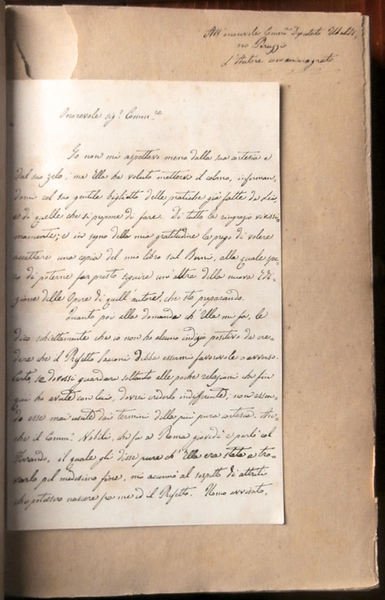 All'onorevole Comm.re Deputato Ubaldi
no Peruzzi
L'Autore
Onorevole sig.r Comm.re
Io non mi aspettavo meno dalla sua cortesia e
dal suo zelo; ma Ella ha voluto mettervi il colmo, informan
domi col suo gentile biglietto delle pratiche già fatte da lei,
e di quelle che si propone di fare. Di tutto la ringrazio vivissi
mamente; e in segno della mia gratitudine la prego di volere
accettare una copia del mio libro sul Berni, alla quale spe
ro di poterne far presto seguire un'altra della nuova Edi
zione delle Opere di quell'autore, che sto preparando.
Quanto poi alla domanda ch'Ella mi fa, le
dico schiettamente che io non ho alcuno indizio positivo da cre
dere che il Prefetto debba essermi favorevole o avverso.
se dovessi guardare soltanto alle poche relazioni che fin
qui ho avute con lui, dovrei crederlo indifferente, non essen
do esse mai uscite dai termini della più pura cortesia. An
che il Comm. che fu a Roma giovedì e parlò col
il quale gli disse pure ch'Ella era stata a tro
varlo pel medesimo fine, mi accennò al sospetto di attriti
che potessero nascere fra me ed il Prefetto. Uomo avvisato,